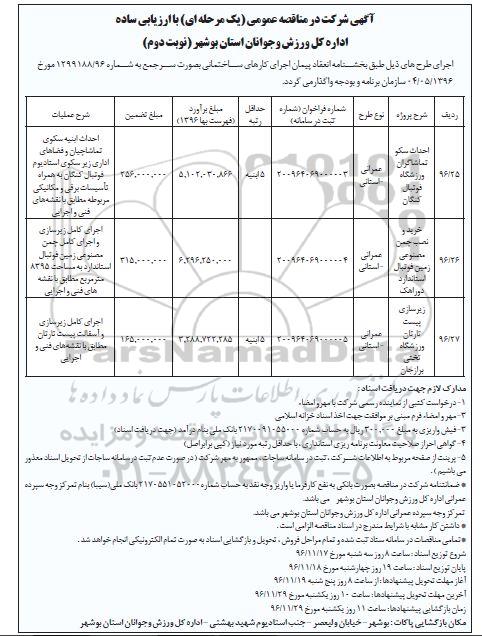 آگهی شرکت در مناقصه عمومی (یک مرحله ای) با ارزیابی ساده
اداره کل ورزش و جوانان استان بوشهر (نوبت دوم)
اجرای طرح های ذیل طبق بخشنامه انعقاد پیمان اجرای کارهای ساختمانی بصورت سرجمع به شماره ۱۲۹۹۱۸۸/۹۶ مورخ
۰۴/۰۵/۱۳۹۶ سازمان برنامه و بودجه واگذار می گردد.
ردیف شرح پروژه نوع طرح شماره فراخوان (شماره ثبت در سامانه) حداقل رتبه مبلغ برآورد (فهرست بها ۱۳۹۶) مبلغ تضمین شرح عملیات
۹۶/۲۵ احداث سکو تماشاگران ورزشگاه فوتبال کنگان عمرانی -استانی ۲۰۰۹۶۴۰۶۹۰۰۰۰۰۳ ۵ابنیه ۵,۱۰۲,۰۳۰,۸۶۶ ۲۵۶,۰۰۰,۰۰۰ احداث ابنیه سکوی تماشاچیان و فضاهای اداری زیر سکوی استادیوم فوتبال کنگان به همراه تأسیسات برقی و مکانیکی مربوطه مطابق با نقشه‌های فنی و اجرایی
۹۶/۲۶ خرید و نصب چمن مصنوعی زمین فوتبال استاندارد دوراهک عمرانی -استانی ۲۰۰۹۶۴۰۶۹۰۰۰۰۰۴ ۶,۲۹۶,۲۵۰,۰۰۰ ۳۱۵,۰۰۰,۰۰۰ اجرای کامل زیرسازی و اجرا کامل چمن مصنوعی زمین فوتبال استاندارد به مساحت ۸۳۹۵ مترمربع مطابق با نقشه های فنی و اجرایی
۹۶/۲۷ زیرسازی پیست تارتان ورزشگاه تختی برازجان عمرانی -استانی ۲۰۰۹۶۴۰۶۹۰۰۰۰۰۵ ۵ابنیه ۳,۲۸۸,۷۲۲,۲۸۵ ۱۶۵,۰۰۰,۰۰۰ اجرای کامل زیرسازی و آسفالت پیست تارتان مطابق با نقشه‌های فنی و اجرایی
مدارک لازم جهت دریافت اسناد:
۱- درخواست کتبی از نماینده رسمی شرکت با مهر و امضاء
۲- مهر و امضاء فرم مبنی بر موافقت جهت اخذ اسناد خزانه اسلامی
۳- فیش واریزی به مبلغ ۳۰۰.۰۰۰ ریال به حساب شماره ۲۱۷۰۰۹۱۰۵۵۰۰۰ بانک ملی بنام درآمد (جهت دریافت اسناد)
۴- گواهی احراز صلاحیت معاونت برنامه ریزی استانداری، با حداقل رتبه مورد نیاز (کپی برابر اصل)
۵- پرینت از صفحه مربوط به اطلاعات شرکت، ثبت در سامانه ساجات، ممهور به مهر شرکت (در صورت عدم ثبت در سامانه ساجات از تحویل اسناد معذور
می باشیم).
* ضمانتنامه شرکت در مناقصه بصورت بانکی به نفع کارفرما یا واریز وجه نقد به حساب شماره ۲۱۷۰۵۵۱۰۵۲۰۰۰ بانک ملی(سیبا) بنام تمرکز وجه سپرده
عمرانی اداره کل ورزش و جوانان استان بوشهر می باشد.
تمرکز وجه سپرده عمرانی اداره کل ورزش و جوانان استان بوشهر می باشد.
* داشتن کار مشابه با شرایط مندرج در اسناد مناقصه الزامی است.
* تمامی مناقصات در سامانه ستاد ثبت شده و تمام مراحل فروش، تحویل و بازگشایی اسناد به صورت تمام الکترونیکی انجام خواهد شد.
شروع توزیع اسناد: ساعت ۸ روز سه شنبه مورخ ۹۶/۱۱/۱۷
پایان توزیع اسناد: ساعت ۱۹ روز چهارشنبه مورخ ۹۶/۱۱/۱۸
آغاز مهلت تحویل پیشنهادها: از ساعت ۸ روز پنج شنبه ۹۶/۱۱/۱۹
آخرین مهلت تحویل پیشنهادها: ساعت ۱۰ روز یکشنبه مورخ ۹۶/۱۱/۲۹
زمان بازگشایی پیشنهادها: ساعت ۱۱ روز یکشنبه مورخ ۹۶/۱۱/۲۹
مکان بازگشایی پاکات: بوشهر - خیابان ولیعصر - جنب استادیوم شهید بهشتی - اداره کل ورزش و جوانان استان بوشهر
ParsNamadData
پایگاه خبری اطلاعات پارس نماد داده ها
۰۲۱-۸۸۳۴۹۶۷۰-۵